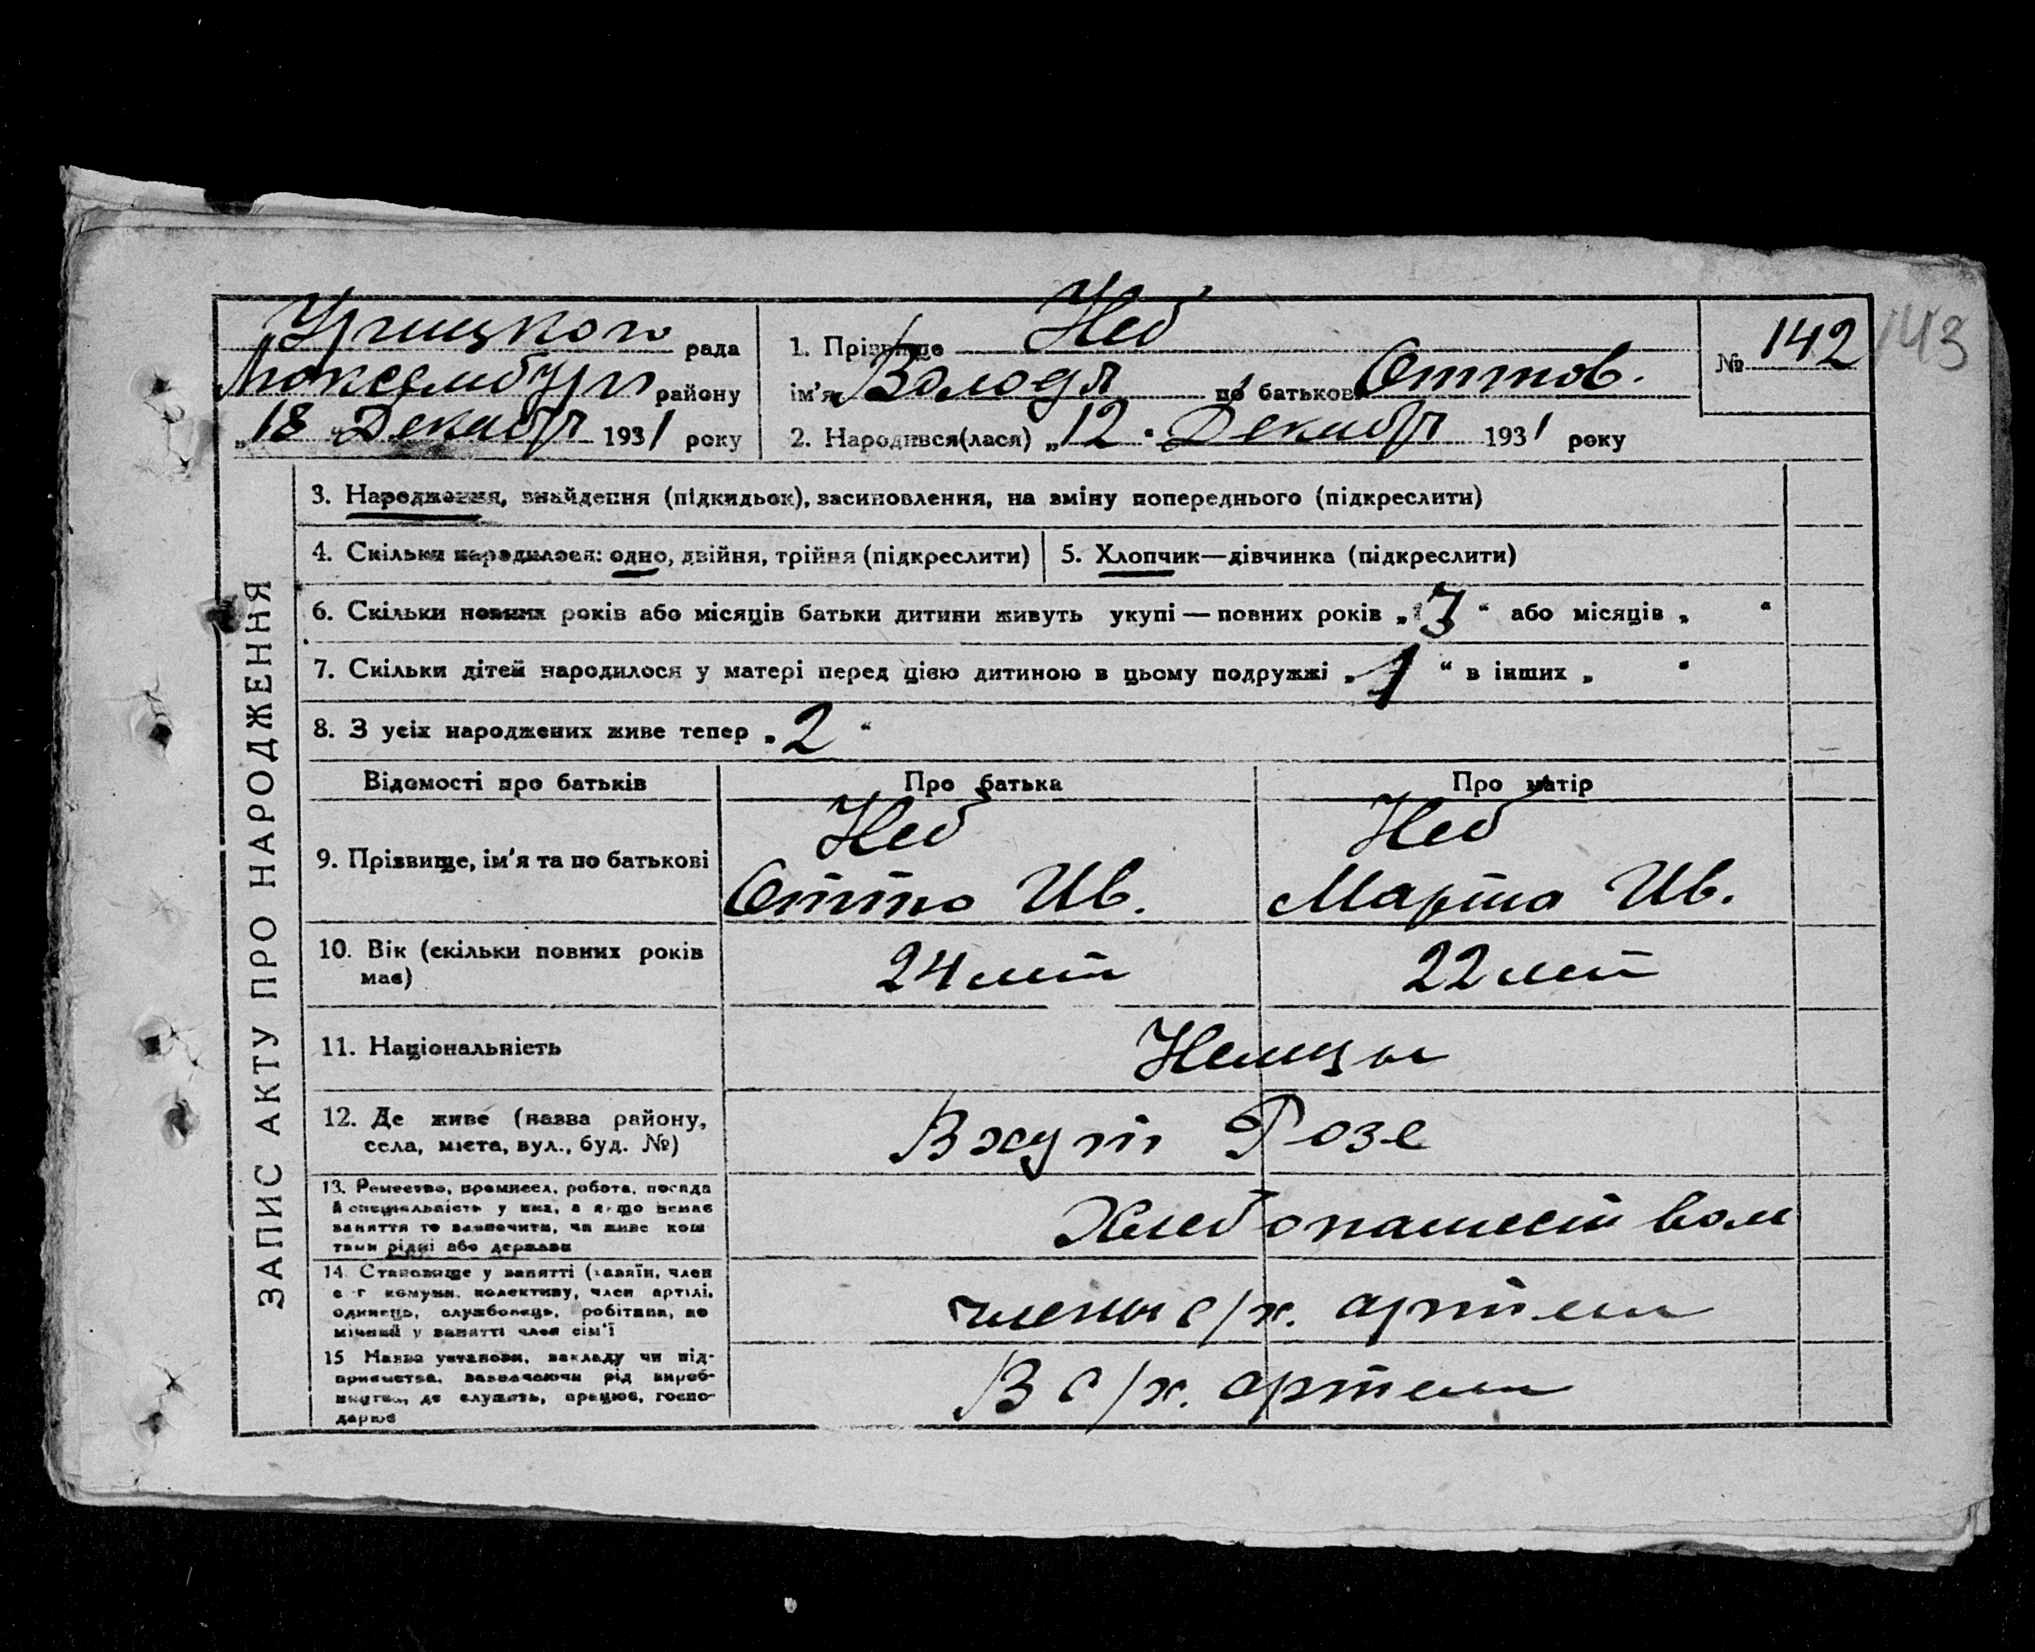 Урицкого рада
Люксембург району
„18 „ Декабр 1931 року
1. Прізвище Неб
ім'я Володя по батькові Оттов.
2. Народився(лася) „12 " Декабр 1931 року
№ 142
143
ЗАПИС АКТУ ПРО НАРОДЖЕННЯ
3. Народження, знайдення (підкидьок), засиновлення, на зміну попереднього (підкреслити)
4. Скільки народилося: одно, двійня, трійня (підкреслити)
5. Хлопчик—дівчинка (підкреслити)
6. Скільки повних років або місяців батьки дитини живуть укупі — повних років „ 3 " або місяців „ "
7. Скільки дітей народилося у матері перед цією дитиною в цьому подружжі „ 1 " в інших „ "
8. З усіх народжених живе тепер „ 2 "
Відомості про батьків
Про батька
Про матір
9. Прізвище, ім'я та по батькові
Неб
Отто Ив.
Неб
Марта Ив.
10. Вік (скільки повних років
має)
24 лет
22 лет
11. Національність
Немцы
12. Де живе (назва району,
села, міста, вул., буд. №)
В хут Розе
13. Ремество, промисел, робота, посада
й спеціяльність у яка, а якщо немає
заняття то зазначити, чи живе кош
тами рідні або держави
Хлебопашеством
14. Становище у занятті (хазяїн, член
с-г комуни, колективу, член артілі,
одинець, службовець, робітник, по
мічний у занятті член сім'ї
члены с/х. артели
15 Назва установи, закладу чи під-
приємства, зазначаючи рід вироб-
ництва, де служить, працює, госпо-
дарює
В с/х. артели